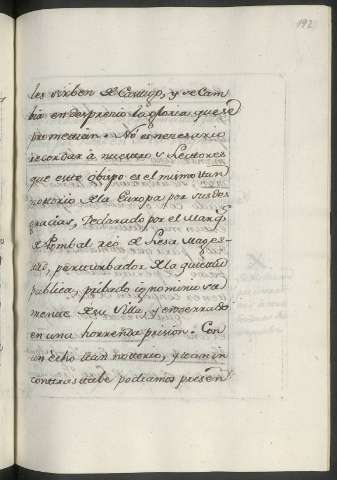 192
les sirben de Castigo, y se Cam
bia en desprecio la gloria que se
prometian. No es necesario
recordar à nuestros Lectores
que este obispo es el mismo tan
nottorio a la Europa por sus des
gracias, Declarado por el Marq.s
de Pombal reó de Lesa Mages-
tad, perturvbador de la quietud
publica, pribado ignominiosa
mente de su Villa, y enserrado
en una horrenda prision. Con
un echo tan nottorio, y tan in
contrastable podriamos presen